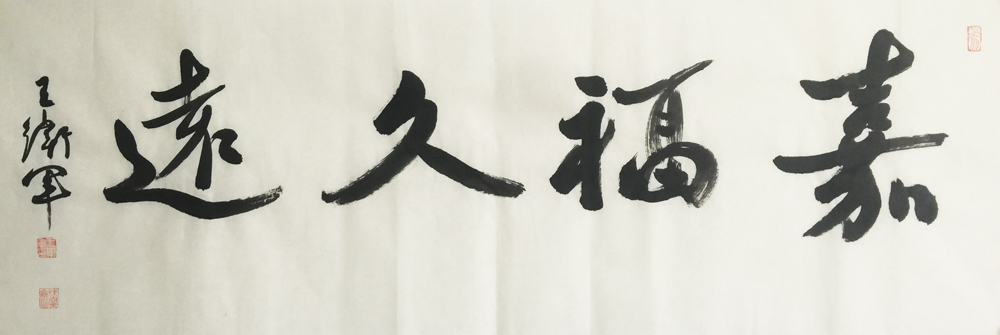 嘉福久遠
王衛軍